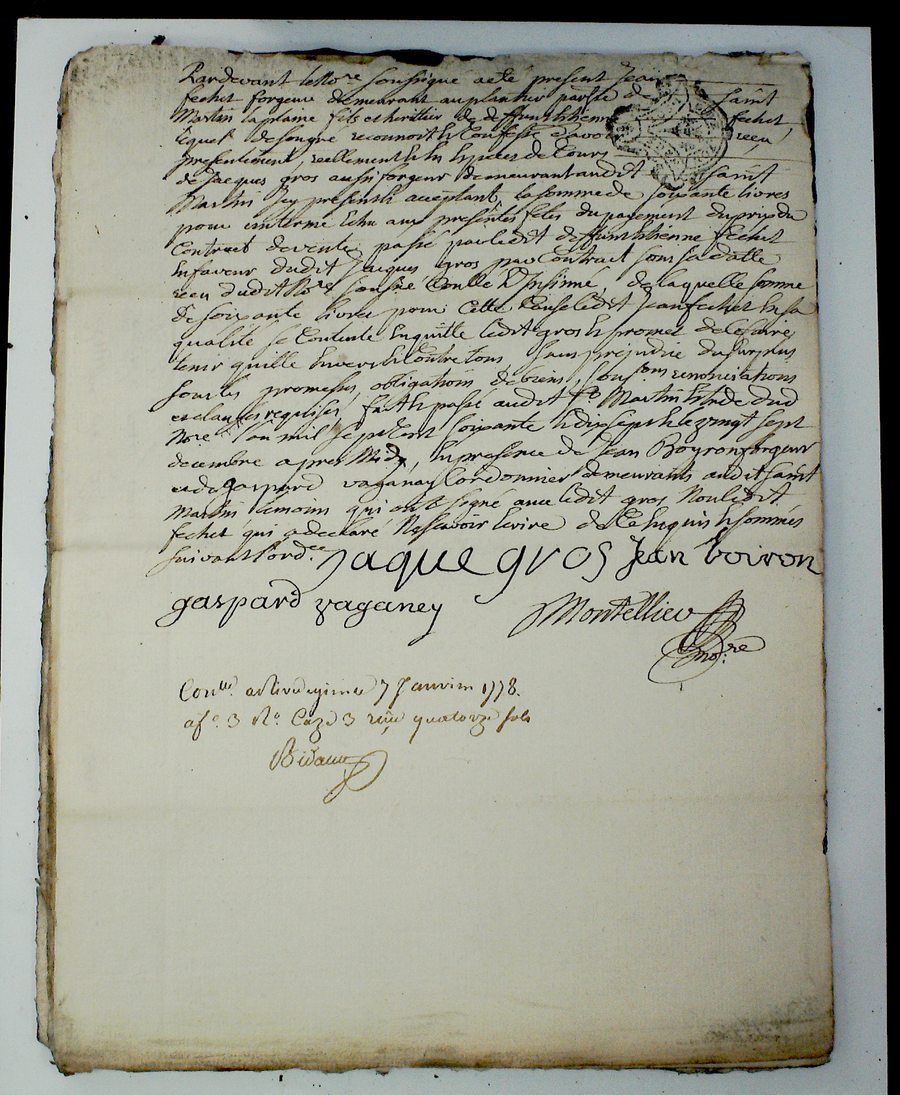 Pardevant le No.re soussigné a esté present Jean
fechet forgeur demeurant au plantier par.sse de saint
Martin la plaine fils et heritier de deffunt Etienne fechet
lequel de son gré reconnoit et Confesse d'avoir receu,
presentement, reellement et en Especes de Cours
de Jacques gros aussi forgeur demeurant audit saint
Martin Icy present et acceptant, la somme de soixante livres
pour un terme Echu aux presentes fetes du payement du prix du
Contract de vente passé par ledit deffunt Etienne fechet
En faveur dudit Jacques gros par Contract sous sa datte
receu dudit No.re soussigné Controllé et Insinué, de laquelle somme
de soixante livres pour cette Cause ledit Jean fechet En sa
qualité se Contente En quitte ledit gros et promet de le faire
tenir quitte Envers et Contre tous, sans prejudice du surplus
sous les promesses, obligations de biens, renonciations
et clauses requises, fait et passé audit St Martin Etude dud
No.re L'an mil sept Cent soixante et dix sept et le vingt sept
decembre apres Midy, En presence de Jean Boyron forgeur
et de gaspard vaganay Cordonnier demeurants audit saint
Martin temoins qui ont signé avec ledit gros Non ledit
fechet qui a declaré Ne scavoir Ecrire de ce Enquis et sommés
suivant l'ord.ce jaque gros Jean boiron
gaspard vaganey Montellier
no.re
Con.lé a Rivedegier le 7 Janvier 1778.
a f.o 3 R.o Caze 3 reçu quatorze sols